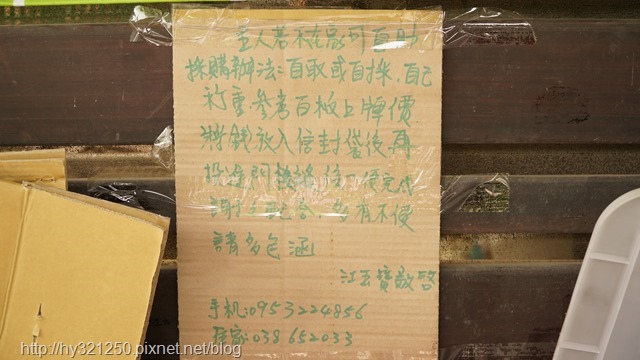 主人若不在家可自助
採購辦法:自取或自採.自己
秤重參考白板上牌價
將錢放入信封袋後再
投進門 後便完成
謝謝配合.多有不便
請多包涵
江玉寶敬啓
手机:0953224856
住家:038652033
http://hy321250.pixnet.net/blog